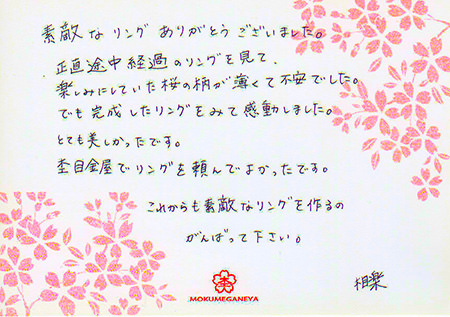 素敵なリングありがとうございました。
正直途中経過のリングを見て、
楽しみにしていた桜の柄が薄くて不安でした。
でも完成したリングをみて感動しました。
とても美しかったです。
杢目金屋でリングを頼んでよかったです。
これからも素敵なリングを作るの
がんばって下さい。
相楽
MOKUMEGANEYA